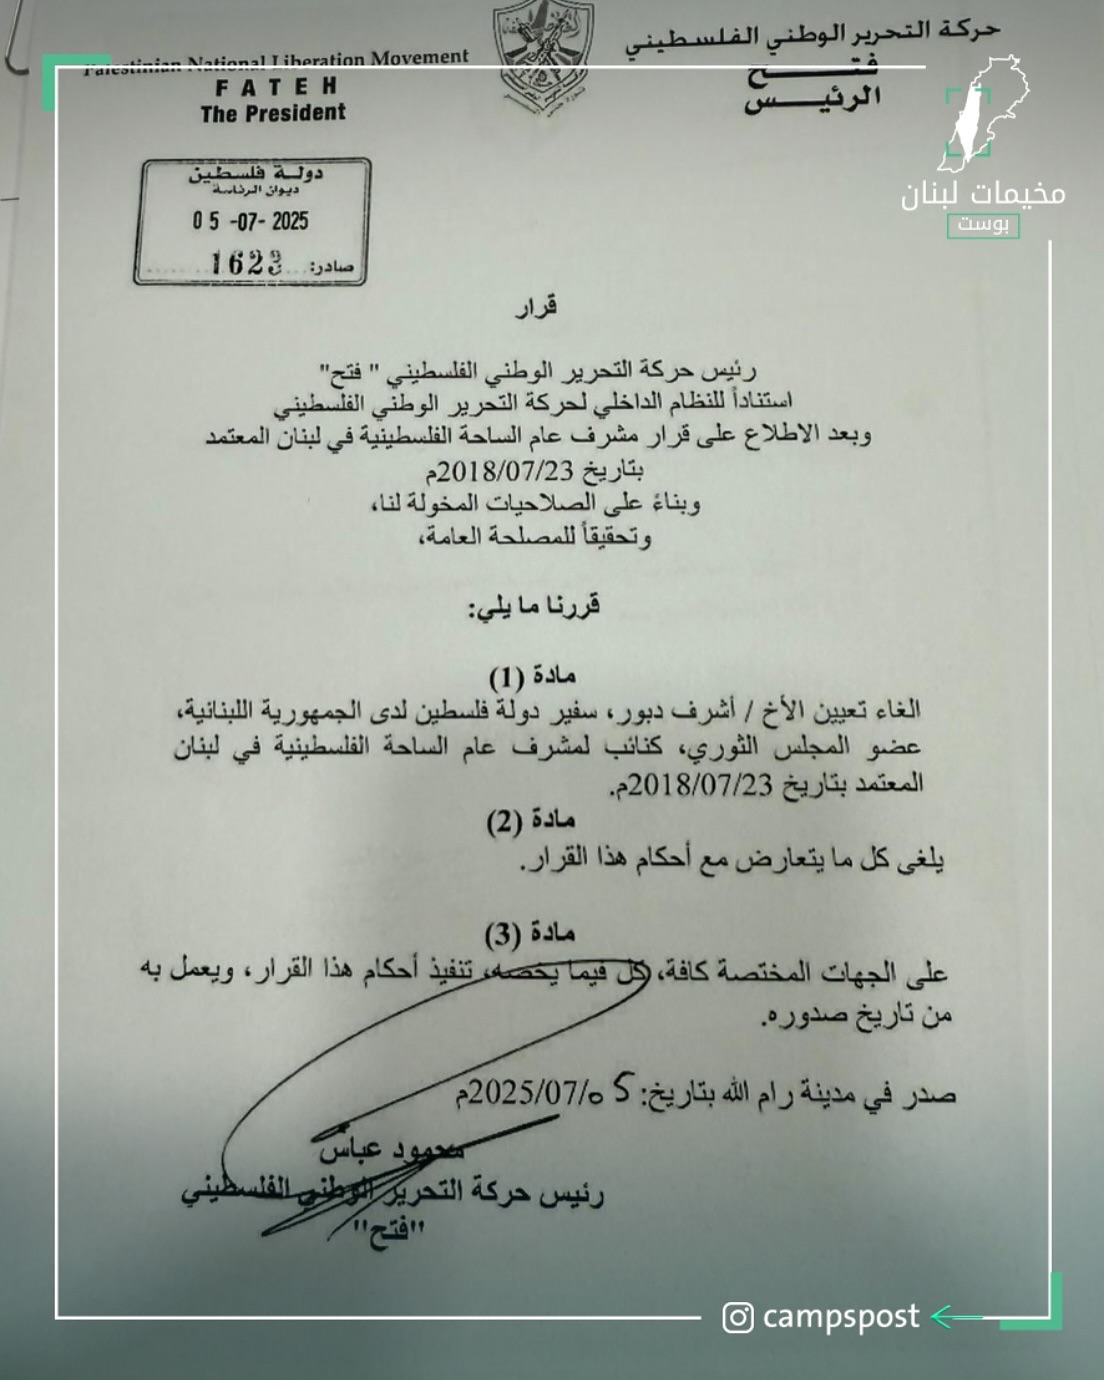 Palestinian National Liberation Movement
FATEH
The President
حركة التحرير الوطني الفلسطيني
فتح
الرئيس
مخيمات لبنان
بوست
دولة فلسطين
ديوان الرئاسة
05-07-2025
صادر: 1623
قرار
رئيس حركة التحرير الوطني الفلسطيني " فتح"
استناداً للنظام الداخلي لحركة التحرير الوطني الفلسطيني
وبعد الاطلاع على قرار مشرف عام الساحة الفلسطينية في لبنان المعتمد
بتاريخ 2018/07/23م
وبناءً على الصلاحيات المخولة لنا،
وتحقيقاً للمصلحة العامة،
قررنا ما يلي:
مادة (1)
الغاء تعيين الأخ / أشرف دبور، سفير دولة فلسطين لدى الجمهورية اللبنانية،
عضو المجلس الثوري، كنائب لمشرف عام الساحة الفلسطينية في لبنان
المعتمد بتاريخ 2018/07/23م.
مادة (2)
يلغى كل ما يتعارض مع أحكام هذا القرار.
مادة (3)
على الجهات المختصة كافة، كل فيما يخصه، تنفيذ أحكام هذا القرار، ويعمل به
من تاريخ صدوره.
صدر في مدينة رام الله بتاريخ: 05/2025/07م
محمود عباس
رئيس حركة التحرير الوطني الفلسطيني
"فتح"
campspost